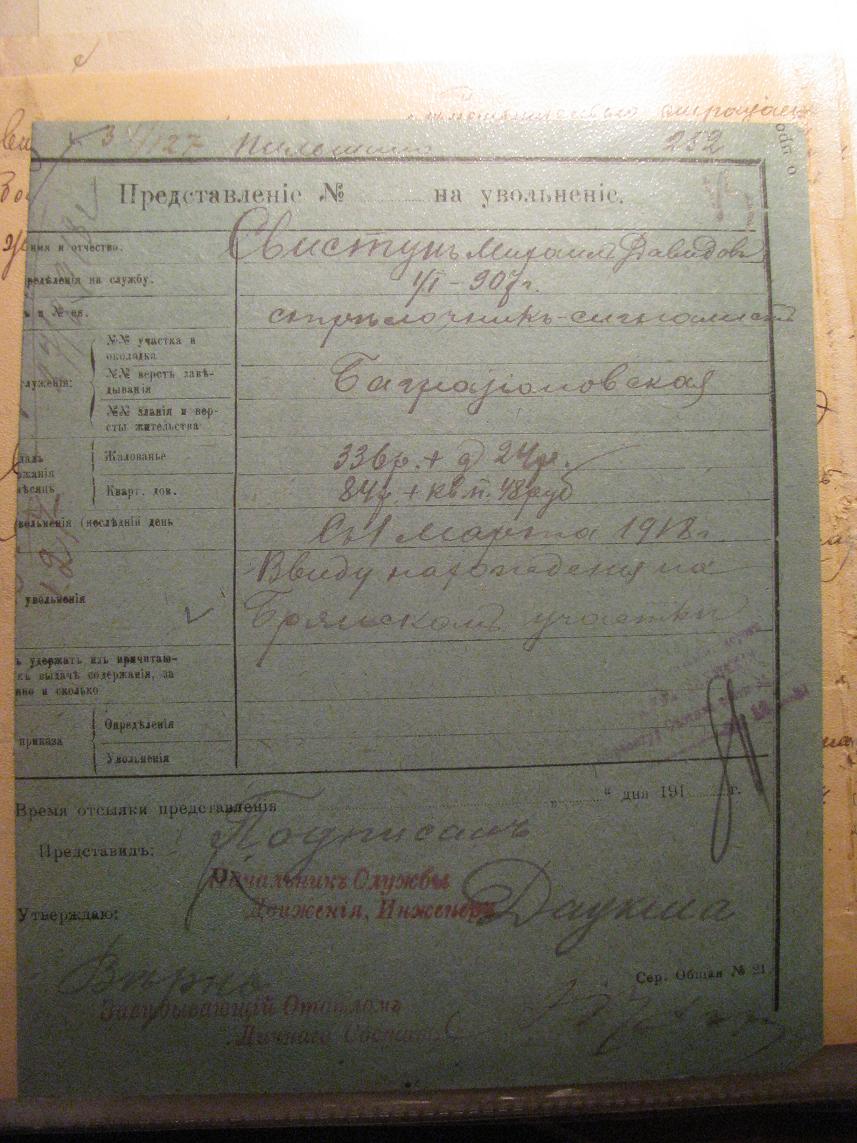 3 127 232
Представленіе № на увольненіе.
мия и отчество. Свистунъ Михаилъ Давидовъ
редѣленія на службу. 1/I – 907г.
ъ и № ея. стрѣлочникъ-сигналистъ
служенія:
№№ участка и
околадка
№№ верстъ завѣ-
дыванія
Баграціоновская
№№ зданія и вер-
сты жительства
Жалованье 336р. + д 24р.
Кварт. дов. 84р + кв.п. 48руб
вольненія (послѣдній день Съ 1 Марта 1918г.
увольненія
Ввиду нарожденія на
Брянскомъ участкѣ
ъ удержать изъ причитаю-
къ выдачѣ содержанія, за
что и сколько
приказа
Опредѣленія
Увольненія
Время отсылки представленія „ “ дня 191 г.
Представилъ: Подписалъ
Начальникъ Службы
Утверждаю: Движенія, Инженеръ Даукша
Сер. Общая № 21
Вѣрно
Завѣдывающій Отдѣломъ
Личнаго Состава